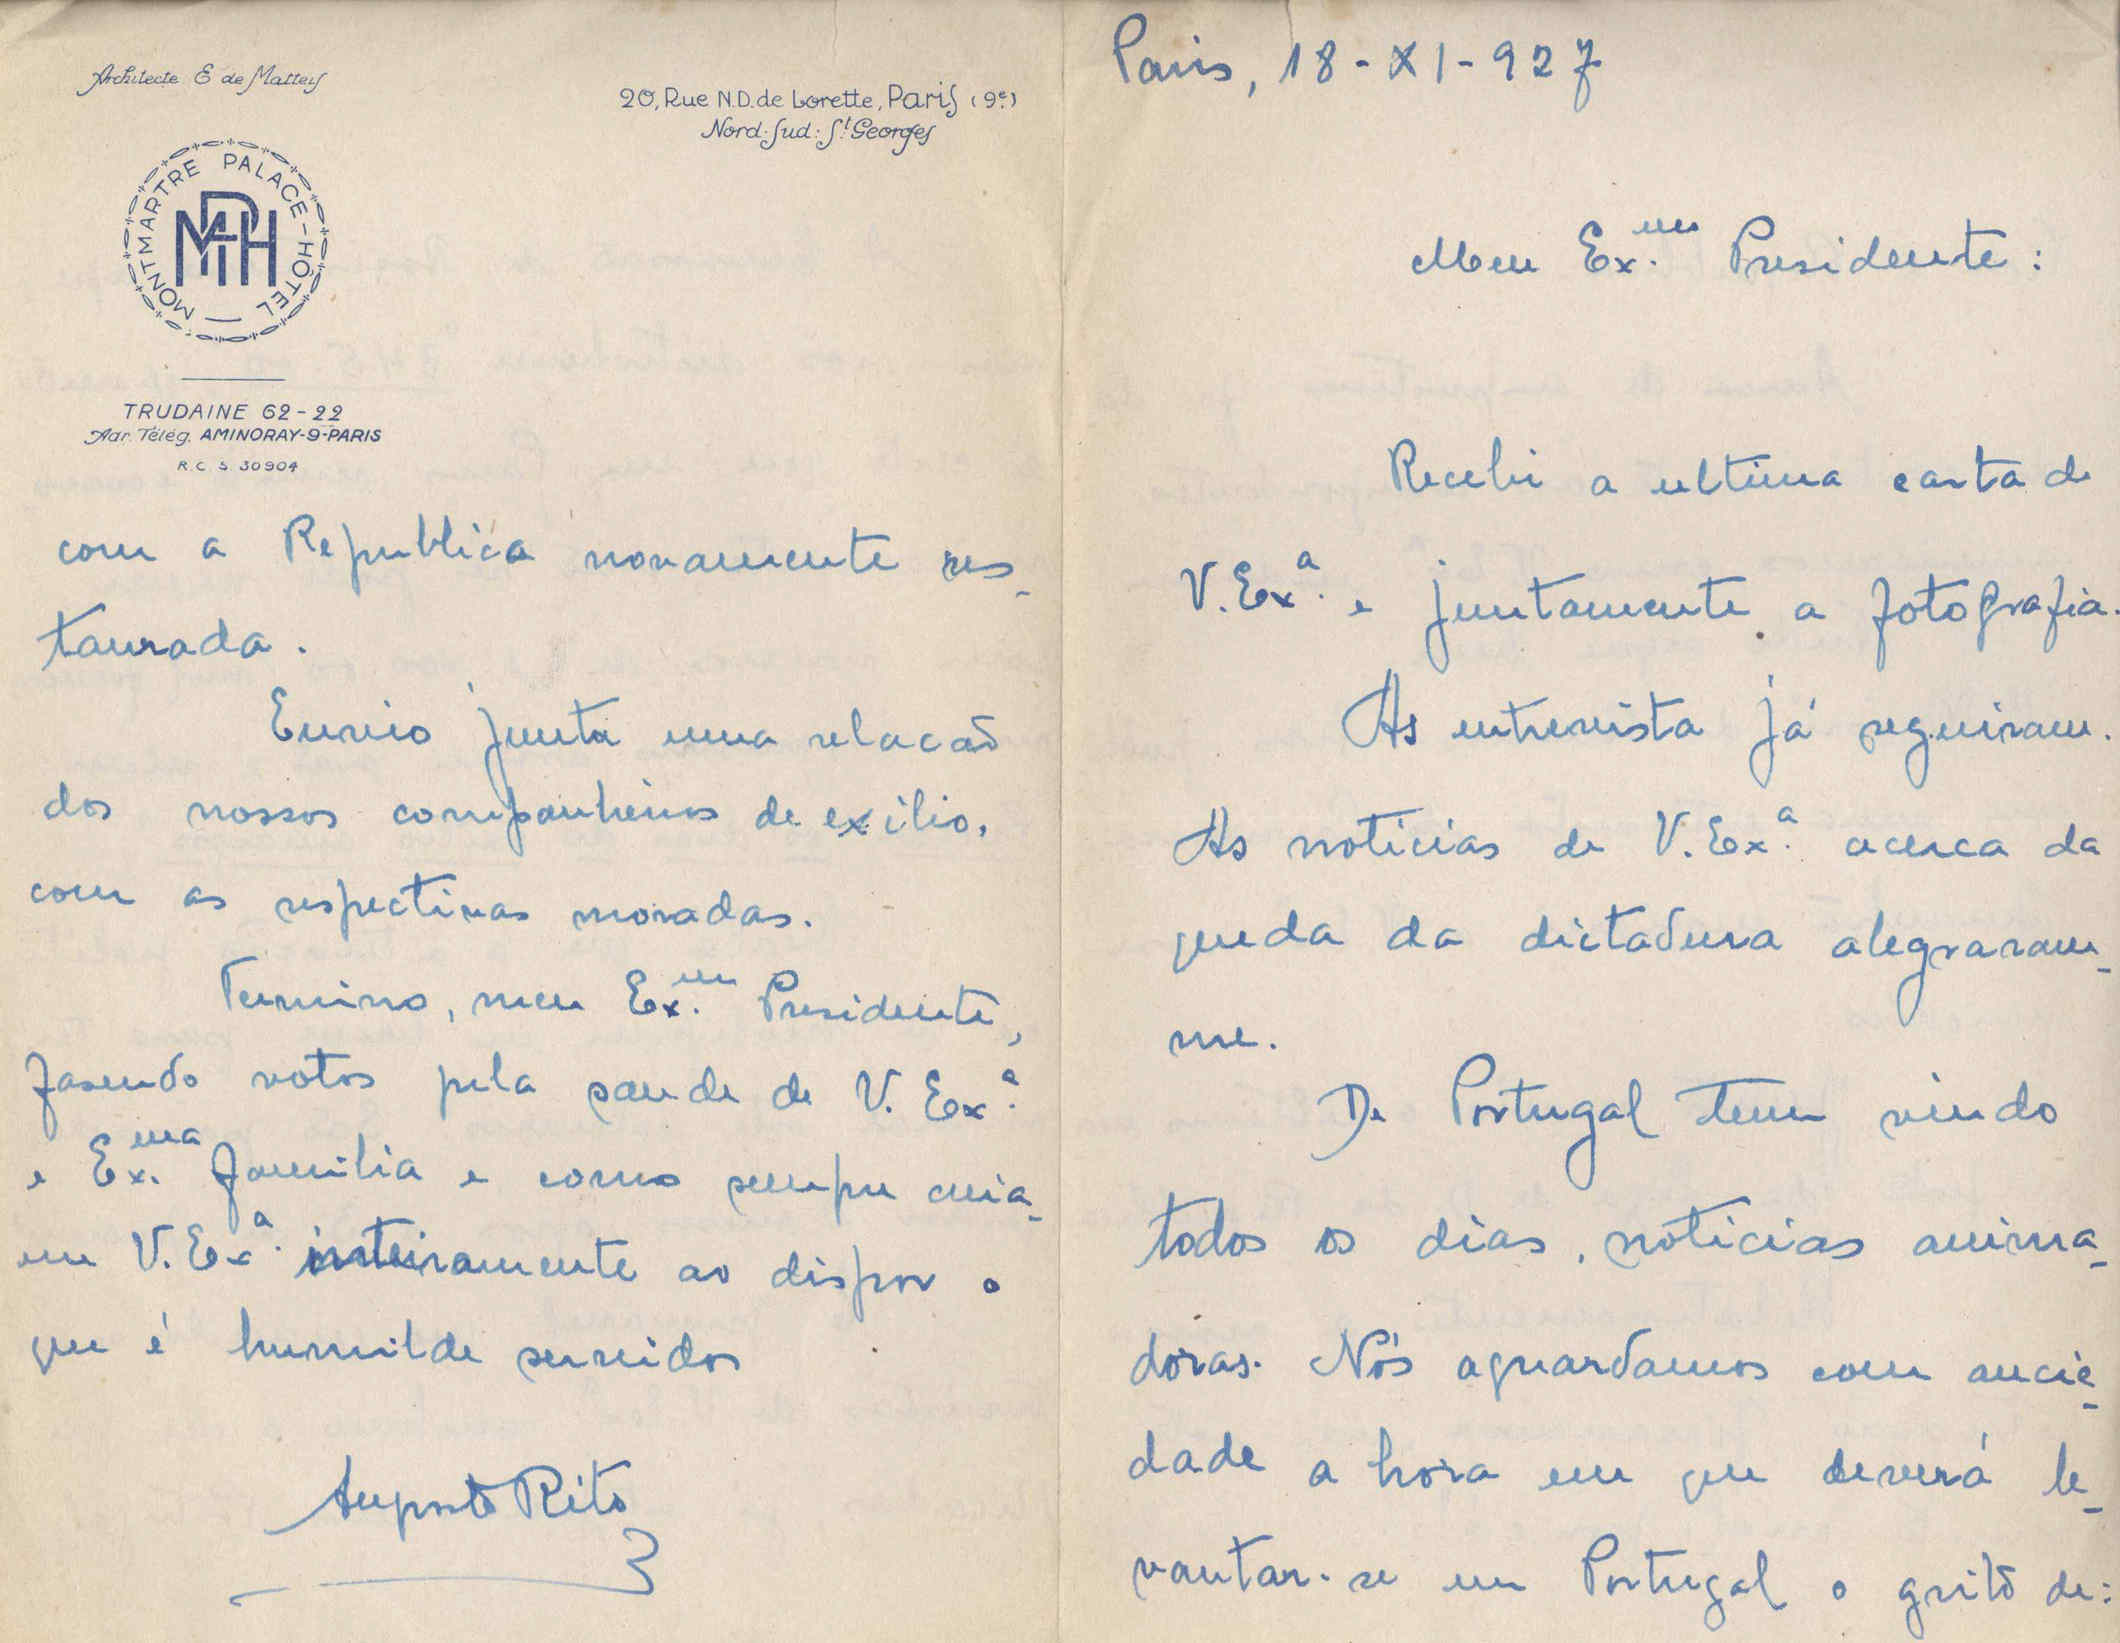 Architecte E de Matteis
20, Rue N.D. de Lorette, Paris (9e)
Nord-Sud: St Georges
MONTMARTRE PALACE-HÔTEL
MPH
TRUDAINE 62-22
Adr. Télég. AMINORAY-9-PARIS
R.C. S. 30904
com a Republica novamente res-
taurada.
Envio junta uma relacão
dos nossos companheiros de exilio,
com as respectivas moradas.
Termino, meu Ex.mo Presidente,
fasendo votos pela saude de V. Ex.a
e Ex.ma familia e como sempre creia-
me V. Ex.a inteiramente ao dispor o
que é humilde servidor
Augusto Rito
Paris, 18-XI-927
Meu Ex.mo Presidente:
Recebi a ultima carta de
V. Ex.a e juntamente a fotografia.
As entrevista já seguiram.
As noticias de V. Ex.a acerca da
queda da dictadura alegraram-
me.
De Portugal tem vindo
todos os dias, noticias anima-
doras. Nós aguardamos com ancie-
dade a hora em que deverá le-
vantar-se em Portugal o grito de: